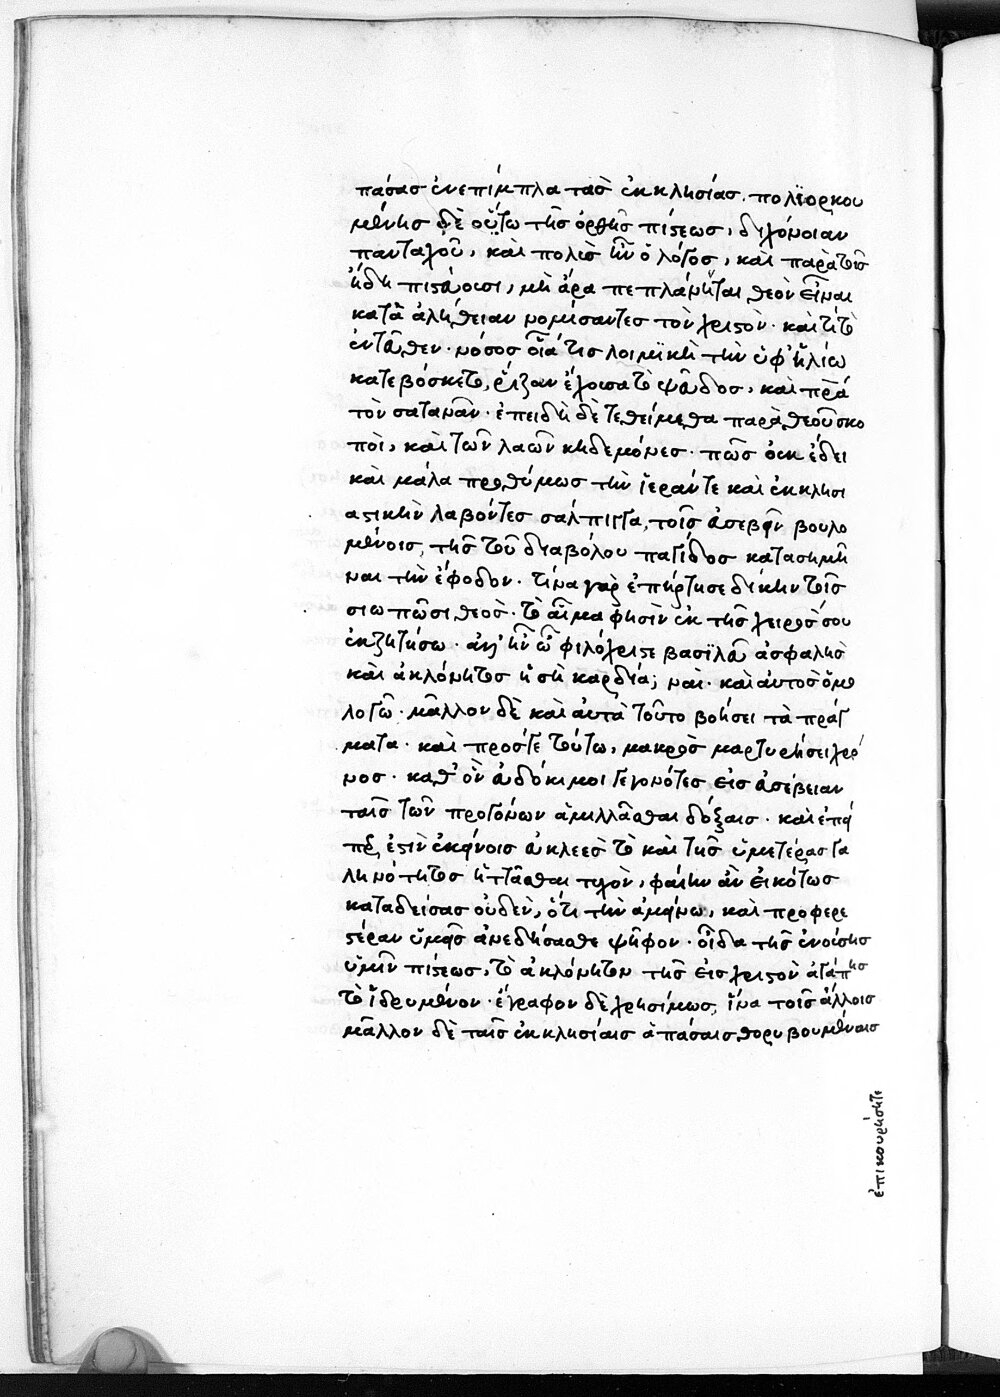 πάσας ἐνεπίμπλα τὰς ἐκκλησίας. πολϊορκου
μένης δὲ οὕτω τῆς ὀρθῆς πίστεως, διχόνοιαν
πανταχοῦ, καὶ πολὺς ἦν ὁ λόγος, καὶ παρὰ τοῖς
ἤδη πιστεύουσι, μὴ ἄρα πεπλάνηται θεὸν εἶναι
κατὰ ἀλήθειαν νομίσαντες τὸν χριστὸν. καὶ τί τὸ
ἐντεῦθεν. νόσος οἷά τις λοιμϊκὴ τὴν ὑφ' ἥλίω
κατεβόσκετο, ῥίζαν ἔχουσα τὸ ψεῦδος, καὶ πρα
τὸν σατανᾶν. ἐπειδὴ δὲ τεθείμεθα παρὰ θεοῦ σκο
ποὶ, καὶ τῶν λαῶν κηδεμόνες. πῶς οὐκ ἔδει
καὶ μάλα προθύμως τὴν ἱεράν τε καὶ ἐκκλησι
αστικὴν λαβόντες σάλπιγγα, τοῖς ἀσεβεῖν βουλο
μένοις, τῆς τοῦ διαβόλου παγίδος κατασημῆ
ναι τὴν ἔφοδον. τίνα γὰρ ἐπήρτησε δίκην τοῖς
σιωπῶσι θεὸς. τὸ αἷμα φησὶν ἐκ τῆς χειρὸς σου
ἐκζητήσω. ἀλλ' ἦν ὦ φιλόχριστε βασϊλεῦ ἀσφαλὴς
καὶ ἀκλόνητος ἡ σὴ καρδία; ναὶ. καὶ αὐτὸς ὁμο
λογῶ. μᾶλλον δὲ καὶ αὐτὰ τοῦτο βοήσει τὰ πράγ
ματα. καὶ πρόσγε τούτω, μακρὸς μαρτυρήσει χρό
νος. καθ' ὃν εὐδόκιμοι γεγονότες εἰς εὐσέβειαν
ταῖς τῶν προγόνων ἁμιλλᾶσθαι δόξαις. καὶ ἐπεί
περ ἐστὶν ἐκείνοις εὐκλεὲς τὸ καὶ τῆς ὑμετέρας γα
ληνότητος ἡττᾶσθαι τυχὸν, φαίην ἂν εἰκότως
καταδείσας οὐδὲν, ὅτι τὴν ἀμείνω, καὶ προφερε
στέραν ὑμεῖς ἀνεδήσασθε ψῆφον. οἶδα τῆς ἐνούσης
ὑμῖν πίστεως, τὸ ἀκλόνητον τῆς εἰς χριστὸν ἀγάπης
τὸ ἱδρυμένον. ἔγραφον δὲ χρησίμως, ἵνα τοῖς ἄλλοις
μᾶλλον δὲ ταῖς ἐκκλησίαις ἁπάσαις θορυβουμέναις
ἐπικουρήσητε